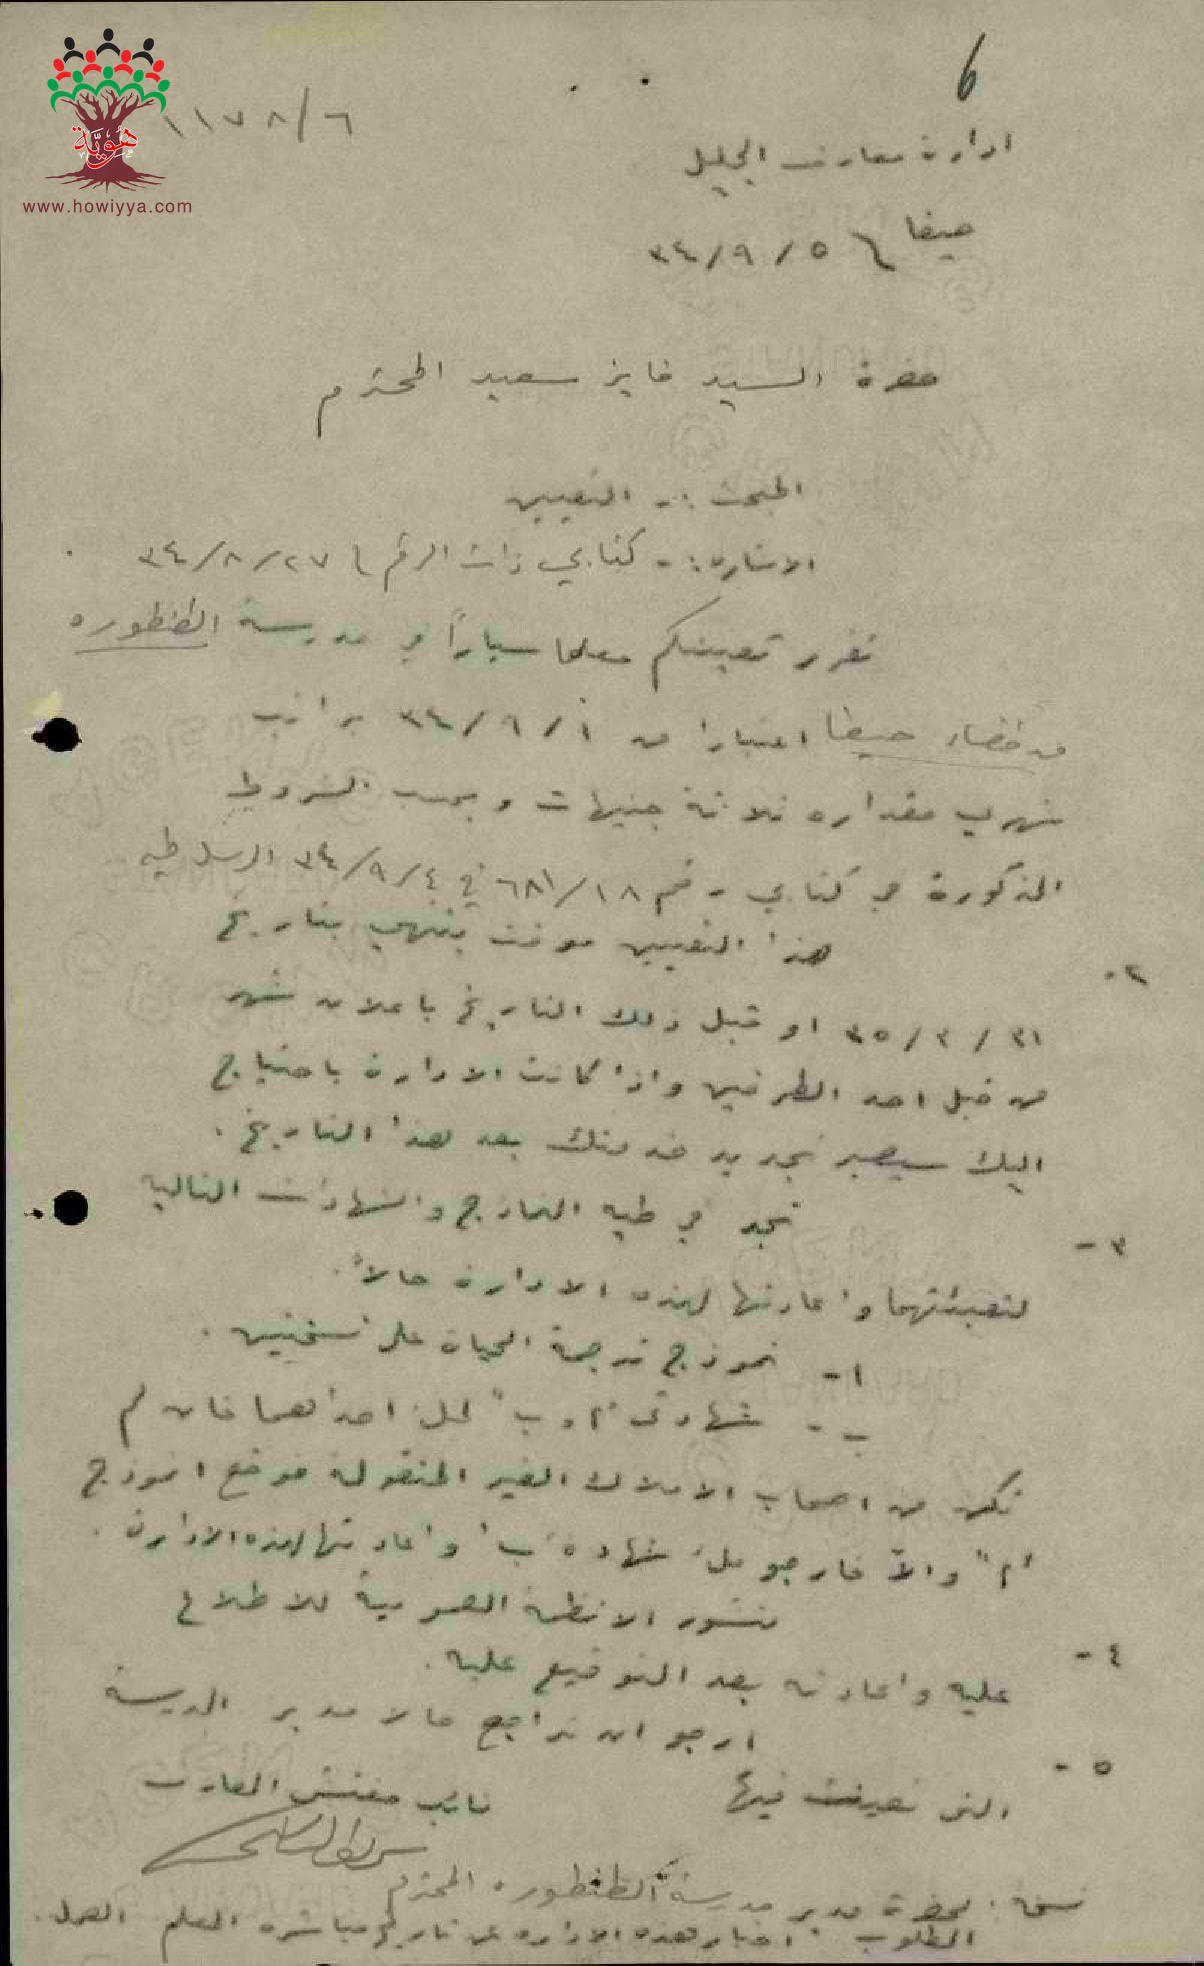 6
هُوِيَّة
www.howiyya.com
١١٧٨/٦
ادارة معارف الجليل
حيفا ٥/٩/٣٤
حضرة السيد فايز سعيد المحترم
المبحث :- التعيين
الاشارة :- كتابي ذات الرقم ٢٧/٨/٣٤
تقرر تعيينكم معلما سياراً في مدرسة الطنطوره
من قضاء حيفا اعتبارا من ١/٩/٣٤ براتب
شهري مقداره ثلاثة جنيهات وبحسب الشروط
المذكورة في كتابي رقم ٦٨١/١٨ في ٤/٩/٣٤ المرسل طيه
٢- هذا التعيين موقت ينتهي بتاريخ
٣١/٣/٣٥ او قبل ذلك التاريخ باعلان شهر
من قبل احد الطرفين واذا كانت الادارة باحتياج
اليك سيصير تجديد خدمتك بعد هذا التاريخ .
٣- تجد في طيه النماذج والشهادات التاليه
لتعبئتهما واعادتها لهذه الادارة حالاً .
١- نموذج ترجمة الحياة على نسختين .
ب - شهادتى "أ و ب" لملء احداهما فان لم
تكن من اصحاب الاملاك الغير المنقولة فوقع انموذج
"أ" والاّ فارجو ملء شهادة "ب" واعادتها لهذه الادارة .
٤- منشور الانظمة العمومية للاطلاع
عليه واعادته بعد التوقيع عليه .
٥- ارجو ان تراجع حالا مدير المدرسة
التى تعينت فيها
نايب مفتش المعارف
نسخة : لحضرة مدير مدرسة الطنطوره المحترم
المطلوب اخبار هذه الاداره عن تاريخ مباشرة المعلم العمل .